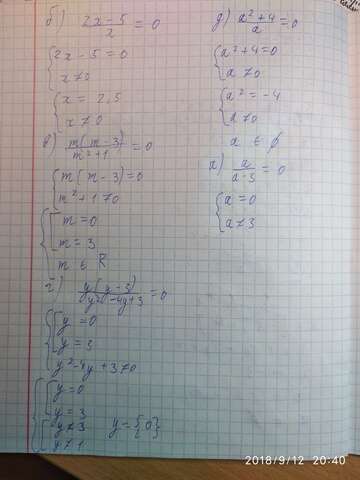 б) 2x-5/x = 0
{ 2x - 5 = 0
x ≠ 0
{ x = 2,5
x ≠ 0
в) m(m-3)/m²+1 = 0
{ m(m-3)=0
m²+1≠0
{ [ m = 0
m = 3
m ∈ R
г) y(y-3)/y²-4y+3 = 0
{ [ y = 0
y = 3
y²-4y+3≠0
{ [ y=0
y=3
{ y≠3
y≠1
y={0}
д) a²+4/a = 0
{ a²+4=0
a ≠ 0
{ a² = -4
a ≠ 0
a ∈ ∅
a/a-3 = 0
{ a = 0
a ≠ 3
2018/9/12 20:40